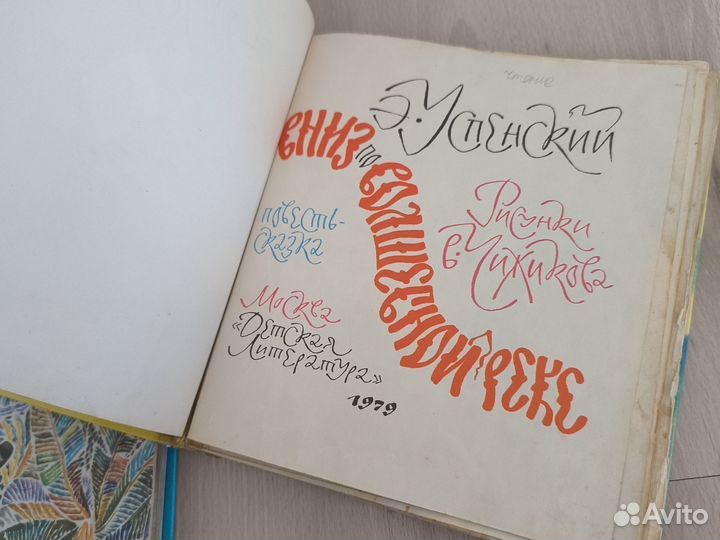 чтение
Э. Успенский
Вниз по волшебной реке
Рисунки
В. Чижикова
повесть-
сказка
Москва
«Детская
Литература»
1979
Avito